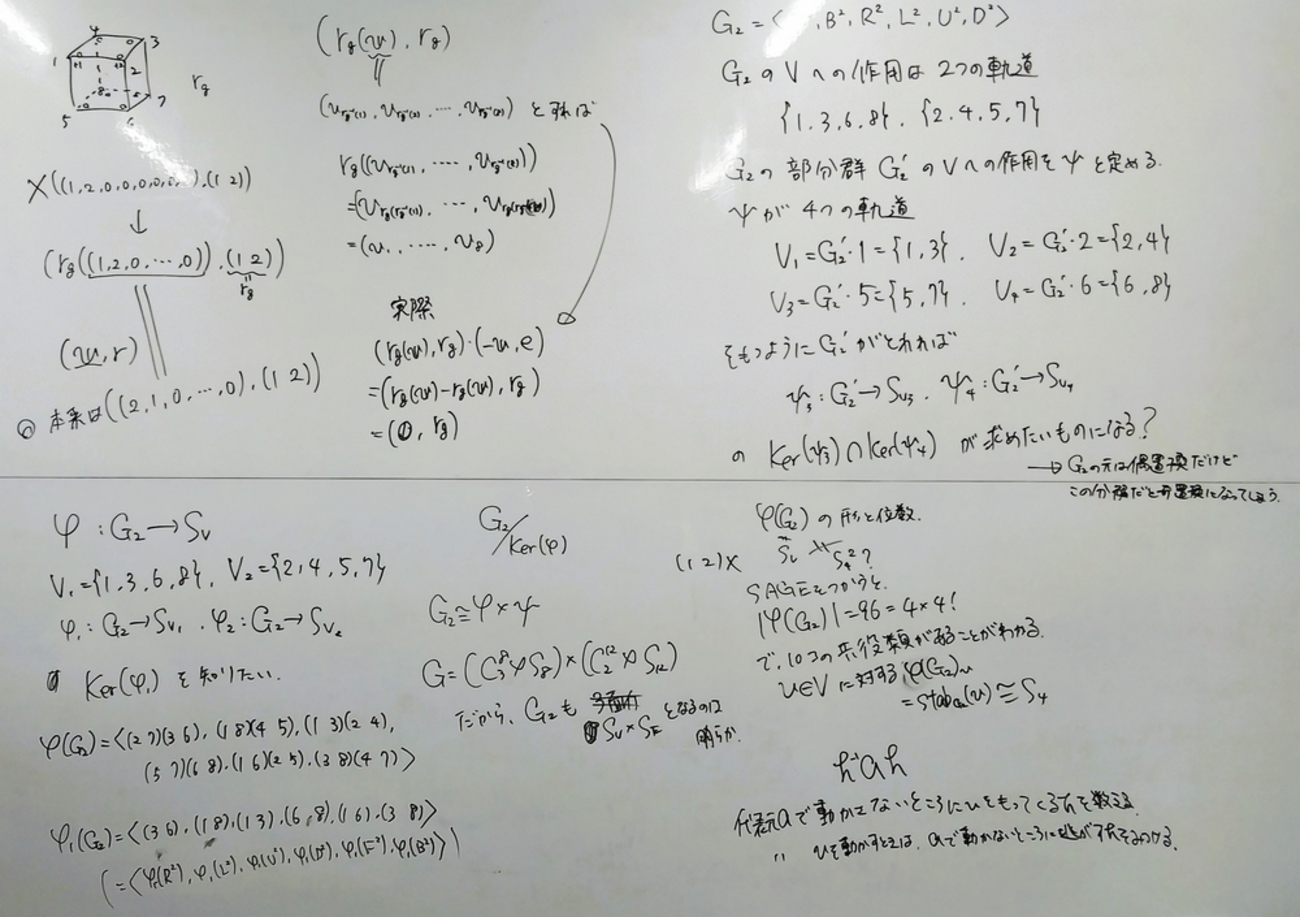 4
3
1
2
8
7
5
r_g
X((1,2,0,0,0,0,0,0),(1 2))
↓
(r_g((1,2,0,…,0)),(1 2))
r_g
(u,r)
本来は((2,1,0,…,0),(1 2))
(r_g(u), r_g)
(u_{r_g^{-1}(1)}, u_{r_g^{-1}(2)}, …, u_{r_g^{-1}(8)}) とすれば
r_g((u_{r_g^{-1}(1)}, …, u_{r_g^{-1}(8)}))
=(u_{r_g(r_g^{-1}(1))}, …, )
=(u_1, …, u_8)
実際
(r_g(u), r_g)・(-u, e)
=(r_g(u)-r_g(u), r_g)
=(0, r_g)
G₂=〈 , B², R², L², U², D²〉
G₂のVへの作用は2つの軌道
{1,3,6,8}, {2,4,5,7}
G₂の部分群G₂'のVへの作用をψと定める.
ψが4つの軌道
V₁=G₂'・1={1,3}, V₂=G₂'・2={2,4}
V₃=G₂'・5={5,7}, V₄=G₂'・6={6,8}
をもつようにG₂'がとれれば
ψ₃:G₂'→S_{V₃}, ψ₄:G₂'→S_{V₄}
の Ker(ψ₃)∩Ker(ψ₄) が求めたいものになる?
→G₂の元は偶置換だけど
この分解だと奇置換になってしまう.
φ:G₂→S_V
V₁={1,3,6,8}, V₂={2,4,5,7}
φ₁:G₂→S_{V₁}, φ₂:G₂→S_{V₂}
Ker(φ₁)を知りたい.
φ(G₂)=〈(2 7)(3 6), (1 8)(4 5), (1 3)(2 4),
(5 7)(6 8), (1 6)(2 5), (3 8)(4 7)〉
φ₁(G₂)=〈(3 6), (1 8), (1 3), (6, 8), (1 6), (3 8)〉
(=〈φ₁(R²), φ₁(L²), φ₁(U²), φ₁(D²), φ₁(F²), φ₁(B²)〉)
G₂/Ker(φ)
G₂≅φ×ψ
G=(C₃⁸⋊S₈)×(C₂¹²⋊S₁₂)
だから、G₂も
S_V×S_Eとなるのは
明らか.
φ(G₂)の形と位数.
(1 2)×
S₄²?
SAGEをつかうと.
|φ(G₂)|=96=4×4!
で、10コの共役類があることがわかる.
u∈Vに対するφ(G₂)_u
=Stab_{G₂}(u)≅S₄
h⁻¹ah
代表元aで動かさないところにuをもってくるhを数える
〃 uを動かすときは、aで動かないところに